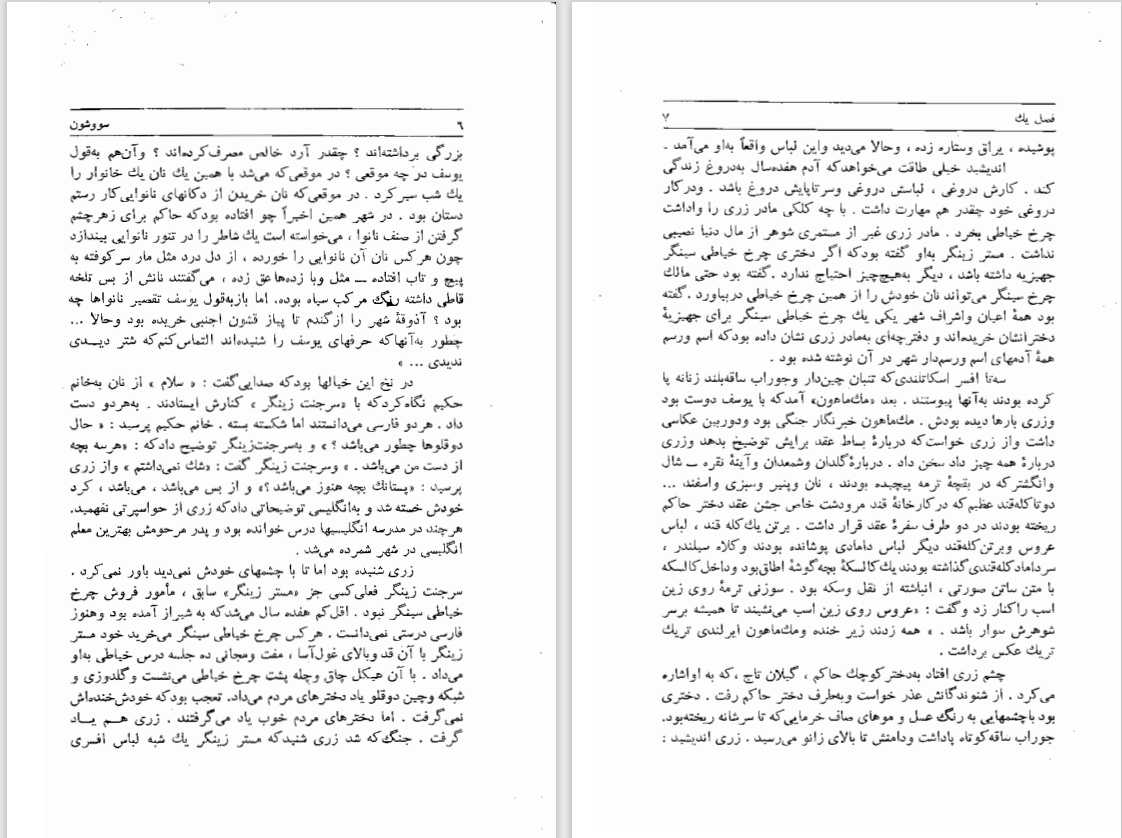 ٦ سووشون
بزرگی برداشته‌اند ؟ چقدر آرد خالص مصرف‌کرده‌اند ؟ وآن‌هم به‌قول
یوسف در چه موقعی ؟ در موقعی‌که می‌شد با همین یك نان یك خانوار را
یك شب سیرکرد . در موقعی‌که نان خریدن از دکانهای نانوایی‌کار رستم
دستان بود . در شهر همین اخیراً چو افتاده بودکه حاکم برای زهرچشم
گرفتن از صنف نانوا ، می‌خواسته است یك شاطر را در تنور نانوایی بیندازد
چون هرکس نان آن نانوایی را خورده ، از دل درد مثل مار سرکوفته به
پیچ و تاب افتاده ــ مثل وبا زده‌هاعق زده ، می‌گفتند نانش از بس تلخه
قاطی داشته رنگ مرکب سیاه بوده. اما بازبه‌قول یوسف تقصیر نانواها چه
بود ؟ آذوقهٔ شهر را ازگندم تا پیاز قشون اجنبی خریده بود وحالا ...
چطور به‌آنهاکه حرفهای یوسف را شنیده‌اند التماس‌کنم‌که شتر دیـــدی
ندیدی ... »
در نخ این خیالها بودکه صدایی‌گفت : « سلام » از نان به‌خانم
حکیم نگاه‌کردکه با «سرجنت زینگر » کنارش ایستادند . به‌هردو دست
داد . هردو فارسی می‌دانستند اما شکسته بسته . خانم حکیم پرسید : « حال
دوقلوها چطور می‌باشد ؟ » و به‌سرجنت‌زینگر توضیح دادکه : «هرسه بچه
از دست من می‌باشد . » وسرجنت زینگر گفت : «شك نمی‌داشتم » واز زری
پرسید : «پستانك بچه هنوز می‌باشد ؟» و از بس می‌باشد ، می‌باشد ، کرد
خودش خسته شد و به‌انگلیسی توضیحاتی دادکه زری از حواسپرتی نفهمید.
هرچند در مدرسه انگلیسیها درس خوانده بود و پدر مرحومش بهترین معلم
انگلیسی در شهر شمرده می‌شد .
زری شنیده بود اما تا با چشمهای خودش نمی‌دید باور نمی‌کرد .
سرجنت زینگر فعلی‌کسی جز «مستر زینگر» سابق ، مأمور فروش چرخ
خیاطی سینگر نبود . اقل‌کم هفده سال می‌شدکه به شیراز آمده بود وهنوز
فارسی درستی نمی‌دانست . هرکس چرخ خیاطی سینگر می‌خرید خود مستر
زینگر با آن قد وبالای غول‌آسا ، مفت ومجانی ده جلسه درس خیاطی به‌او
می‌داد . با آن هیکل چاق وچله پشت چرخ خیاطی می‌نشست وگلدوزی و
شبکه وچین دوقلو یاد دخترهای مردم می‌داد. تعجب بودکه خودش‌خنده‌اش
نمی‌گرفت . اما دخترهای مردم خوب یاد می‌گرفتند . زری هـــم یـــاد
گرفت . جنگ‌که شد زری شنیدکه مستر زینگر یك شبه لباس افسری
فصل یك ۷
پوشیده ، یراق وستاره زده ، وحالا می‌دید واین لباس واقعاً به‌او می‌آمد .
اندیشید خیلی طاقت می‌خواهدکه آدم هفده‌سال به‌دروغ زندگی
کند . کارش دروغی ، لباسش دروغی وسرتاپایش دروغ باشد . ودرکار
دروغی خود چقدر هم مهارت داشت . با چه کلکی مادر زری را واداشت
چرخ خیاطی بخرد . مادر زری غیر از مستمری شوهر از مال دنیا نصیبی
نداشت . مستر زینگر به‌او گفته بودکه اگر دختری چرخ خیاطی سینگر
جهیزیه داشته باشد ، دیگر به‌هیچ‌چیز احتیاج ندارد .گفته بود حتی مالك
چرخ سینگر می‌تواند نان خودش را از همین چرخ خیاطی دربیاورد .گفته
بود همهٔ اعیان واشراف شهر یکی یك چرخ خیاطی سینگر برای جهیزیهٔ
دخترانشان خریده‌اند و دفترچه‌ای به‌مادر زری نشان داده بودکه اسم ورسم
همهٔ آدمهای اسم ورسم‌دار شهر در آن نوشته شده بود .
سه‌تا افسر اسکاتلندی‌که تنبان چین‌دار وجوراب ساقه‌بلند زنانه پا
کرده بودند به‌آنها پیوستند . بعد «مك‌ماهون» آمدکه با یوسف دوست بود
وزری بارها دیده بودش . مك‌ماهون خبرنگار جنگی بود ودوربین عکاسی
داشت واز زری خواست‌که دربارهٔ بساط عقد برایش توضیح بدهد وزری
دربارهٔ همه چیز داد سخن داد . دربارهٔ‌گلدان وشمعدان وآینهٔ نقره ــ شال
وانگشترکه در بقچهٔ ترمه پیچیده بودند ، نان وپنیر وسبزی واسفند ...
دوتاکله‌قند عظیم‌که درکارخانهٔ قند مرودشت خاص جشن عقد دختر حاکم
ریخته بودند در دو طرف سفرهٔ عقد قرار داشت . برتن یك‌کله قند ، لباس
عروس وبرتن‌کله‌قند دیگر لباس دامادی پوشانده بودند وکلاه سیلندر ،
سردامادکله‌قندی‌گذاشته بودند یك‌کالسکهٔ بچه‌گوشهٔ اطاق‌بود وداخل‌کالسکه
با متن ساتن صورتی ، انباشته از نقل وسکه بود . سوزنی ترمهٔ روی زین
اسب راکنار زد وگفت : «عروس روی زین اسب می‌نشیند تا همیشه برسر
شوهرش سوار باشد . » همه زدند زیر خنده ومك‌ماهون ایرلندی تریك
تریك عکس برداشت .
چشم زری افتاد به‌دخترکوچك حاکم ، گیلان تاج ،که به اواشاره
می‌کرد . از شنوندگانش عذر خواست وبه‌طرف دختر حاکم رفت . دختری
بود باچشمهایی به رنگ عسل و موهای صاف خرمایی‌که تا سرشانه ریخته‌بود.
جوراب ساقه‌کوتاه پاداشت ودامنش تا بالای زانو می‌رسید . زری اندیشید :